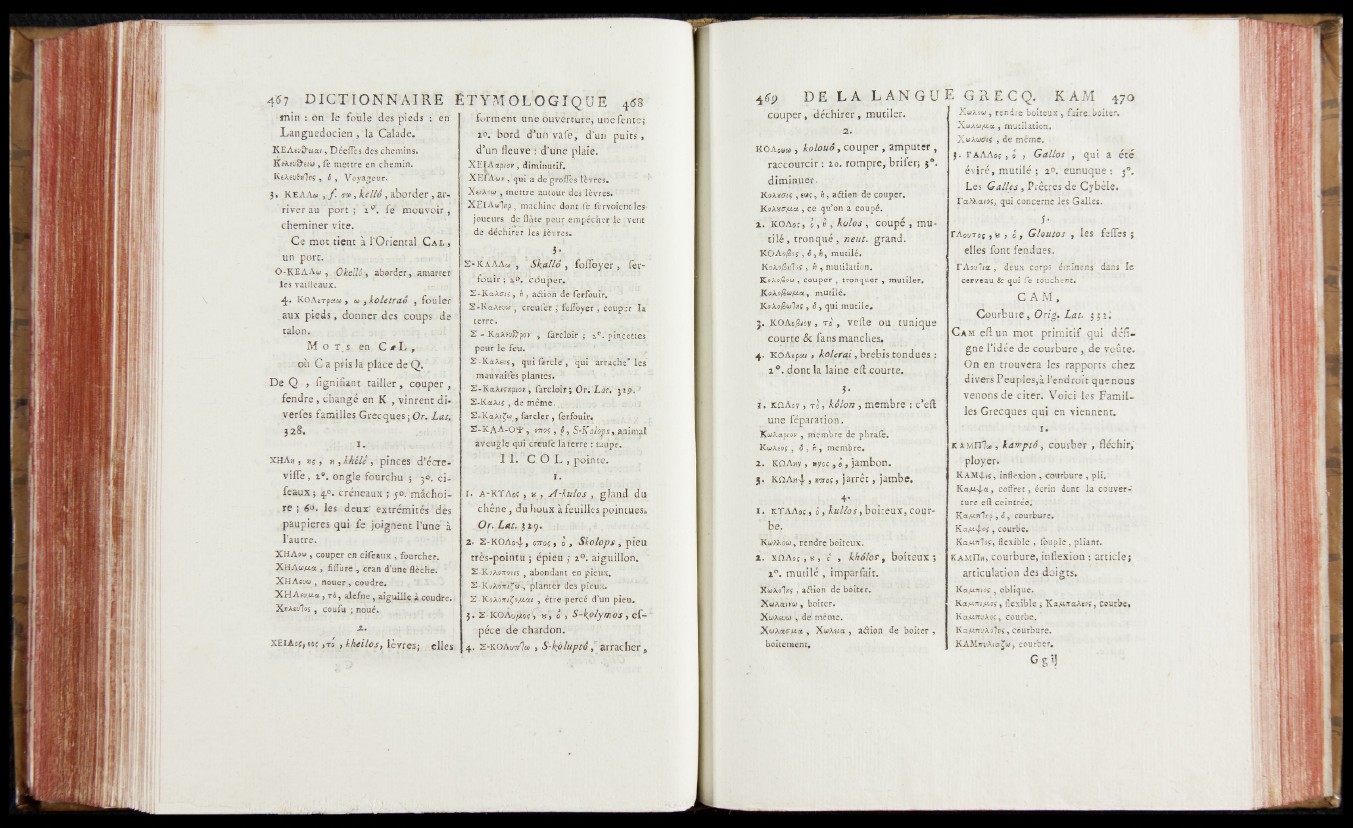 467 DICTIONNAIRE ÉTYMOLOGIQUE 468
min : on le foule des pieds : en
Languedocien, la Calade.
ΚΕΛευθειαι, Déesses des chemins.
Κελευθειω, se mettre en chemin.
Κελευθοίης, ὁ, Voyageur.
3. ΚΕΛΛω, f. σω, kelló, aborder, ar-
river au port ; 2°. se mouvoir,
cheminer vîte.
Ce mot tient à l'Oriental CAL,
un port.
Ο-ΚΕΛΛω, Okelló, aborder, amarrer
les vaisseaux.
4. ΚΟΛετραω, ω, koletraó, fouler
aux pieds, donner des coups de
talon.
MOTS en C L,
où C a pris la place de Q.
De Q, signifiant tailler, couper,
fendre, changé en K, vinrent di-
verses familles Grecques ; Or. Lat.
328.
1.
ΧΗΛη, ης, ἡ, khélé, pinces d'écre-
visse, 2°. ongle fourchu ; 3°. ci-
seaux ; 4°. créneaux ; 5°. mâchoi-
re ; 6°. les deux extrémités des
paupieres qui se joignent l'une à
l'autre.
ΧΗΛοω, couper en ciseaux, fourcher.
ΧΗΛωμα, fissure, cran d'une flèche.
ΧΗΛευω, nouer, coudre.
ΧΗΛευμα, τό, alesne, aiguille à coudre.
Χηλευτος, cousu ; noué.
2.
ΧΕΙΛος, εος, τὸ, kheilos, lèvres ; elles
forment une ouverture, une fente ;
2°. bord d'un vase, d'un puits,
d'un fleuve : d'une plaie.
ΧΕΙΛαριον, diminutif.
ΧΕΙΛων, qui a de grosses lèvres.
Χειλοω, mettre autour des lèvres.
ΧΕΙΛωτηρ, machine dont se servoient les
joueurs de flûte pour empêcher le vent
de déchirer les lèvres.
3.
Σ-ΚΑΛΛω, Skalló, fossoyer, ser-
fouir ; 2°. couper.
Σ-Καλσις, ἡ, action de serfouir.
Σ-Καλευω, creuser ; fossoyer, couper la
terre.
Σ-Καλευθρον, sarcloir ; 2°. pincettes
pour le feu.
Σ-Καλευς, qui sarcle, qui arrache les
mauvaises plantes.
Σ-Καλιςηριον, sarcloir ; Or. Lat. 329.
Σ-Καλις, de même.
Σ-Καλιζω, sarcler, serfouir.
Σ-ΚΑΛ-ΟΨ, οπος, ὁ, S-Kalops, animal
aveugle qui creuse la terre : taupe.
II. COL, pointe.
1.
1. Α-ΚΥΛος, ὁ, A-kulos, gland du
chêne, du houx à feuilles pointues.
Or. Lat. 329.
2. Σ-ΚΟΛοψ, οπος, ὁ, Skolops, pieu
très-pointu ; épieu ; 2°. aiguillon.
Σ-Κολοποεις, abondant en pieux.
Σ-Κολοπιζω, planter des pieux.
Σ-Κολοπιζομαι, être percé d'un pieu.
3. Σ-ΚΟΛυμος, ου, ὁ, S-kolymos, es-
péce de chardon.
4. Σ-ΚΟΛυπτω, S-koluptó, arracher,
469 DE LA LANGUE GRECQ. KAM 470
couper, déchirer, mutiler.
2.
ΚΟΛουω, kolouó, couper, amputer,
raccourcir : 2°. rompre, briser ; 3°.
diminuer.
Κολουσις, εως, ἡ, action de couper.
Κολουσμα, ce qu'on a coupé.
2. ΚΟΛος, ὁ, ἡ, kolos, coupé, mu-
tilé, tronqué, neut. grand.
ΚΟΛοβος, ὁ, ἡ, mutilé.
Κολοβοτης, ἡ, mutilation.
Κολοβοω, couper, tronquer, mutiler.
Κολοβωμα, mutilé.
Κολοβωτης, ὁ, qui mutile.
3. ΚΟΛοβιον, τὸ, veste ou tunique
courte & sans manches.
4. ΚΟΛεραι, kolerai, brebis tondues :
2°. dont la laine est courte.
3.
1. ΚΩΛον, τὸ, kôlon, membre : c'est
une séparation.
Κωλαριον, membre de phrase.
Κωλεος, ὁ, ἡ, membre.
2. ΚΩΛην, ηνος, ὁ, jambon.
3. ΚΩΛηψ, ηπος, jarrêt, jambe.
4.
1. ΚΥΛΛος, ὁ, kullos, boiteux, cour-
be.
Κυλλοω, rendre boiteux.
2. ΧΩΛος, ου, ὁ, khôlos, boiteux ;
2°. mutilé, imparfait.
Χωλοτης, action de boiter.
Χωλαινω, boiter.
Χωλευω, de même.
Χωλασμα, Χωλεια, action de boiter,
boitement.
Χωλοω, rendre boiteux, faire boiter.
Χωλωμα, mutilation.
Χωλωσις, de même.
3. ΓΑΛΛος, ὁ, Gallos, qui a été
éviré, mutilé ; 2°. eunuque : 3°.
Les Galles, Prêtres de Cybèle.
Γαλλαιος, qui concerne les Galles.
5.
ΓΛουτος, ου, ὁ, Gloutos, les fesses ;
elles sont fendues.
ΓΛουτια, deux corps éminens dans le
cerveau & qui se touchent.
CAM,
Courbure, Orig. Lat. 332.
CAM est un mot primitif qui dési-
gne l'idée de courbure, de voûte.
On en trouvera les rapports chez
divers Peuples, à l'endroit que nous
venons de citer. Voici les Famil-
les Grecques qui en viennent.
1.
ΚΑΜΠτω, kamptó, courber, fléchir,
ployer.
ΚΑΜψις, inflexion, courbure, pli.
Καμψα, coffret, écrin dont la couver-
ture est ceintrée.
Καμπτηρ, ὁ, courbure.
Καμψος, courbe.
Καμπτος, flexible, souple, pliant.
ΚΑΜΠη, courbure, inflexion : article ;
articulation des doigts.
Καμπιος, oblique.
Καμπιμος, flexible ; Καμπαλεος, courbe.
Καμπυλος, courbe.
Καμπυλοτης, courbure.
ΚΑΜπυλιαζω, courber.
G g ij